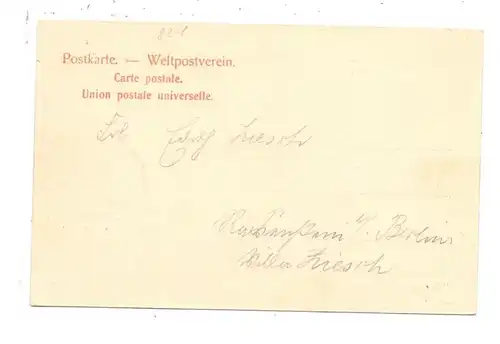 8201
Postkarte. — Weltpostverein.
Carte postale.
Union postale universelle.
Frl. Edith Ziesch
b/ Berlin
Villa Ziesch